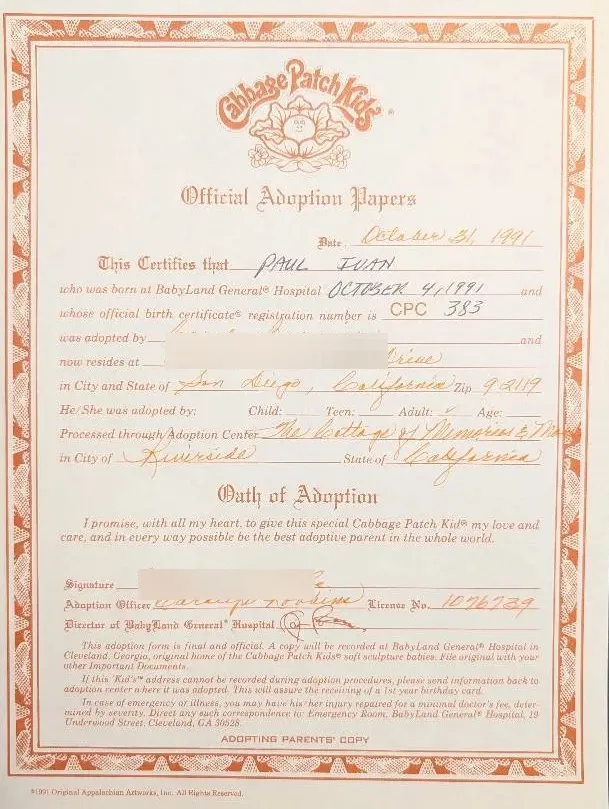 Cabbage Patch Kids®
Official Adoption Papers
Date: October 31, 1991
This Certifies that PAUL IVAN
who was born at BabyLand General® Hospital OCTOBER 4, 1991 and
whose official birth certificate® registration number is CPC 383
was adopted by and
now resides at Drive
in City and State of San Diego, California Zip 92119
He/She was adopted by: Child: Teen: Adult: ✓ Age:
Processed through/Adoption Center The Cottage of Memories &
in City of Riverside State of California
Oath of Adoption
I promise, with all my heart, to give this special Cabbage Patch Kid® my love and
care, and in every way possible be the best adoptive parent in the whole world.
Signature
Adoption Officer License No. 1076739
Director of BabyLand General® Hospital
This adoption form is final and official. A copy will be recorded at BabyLand General® Hospital in
Cleveland, Georgia, original home of the Cabbage Patch Kids® soft sculpture babies. File original with your
other Important Documents.
If this 'Kid's™ address cannot be recorded during adoption procedures, please send information back to
adoption center where it was adopted. This will assure the receiving of a 1st year birthday card.
In case of emergency or illness, you may have his/her injury repaired for a minimal doctor's fee, deter-
mined by severity. Direct any such correspondence to: Emergency Room, BabyLand General® Hospital, 19
Underwood Street, Cleveland, GA 30528.
ADOPTING PARENTS' COPY
©1991 Original Appalachian Artworks, Inc. All Rights Reserved.